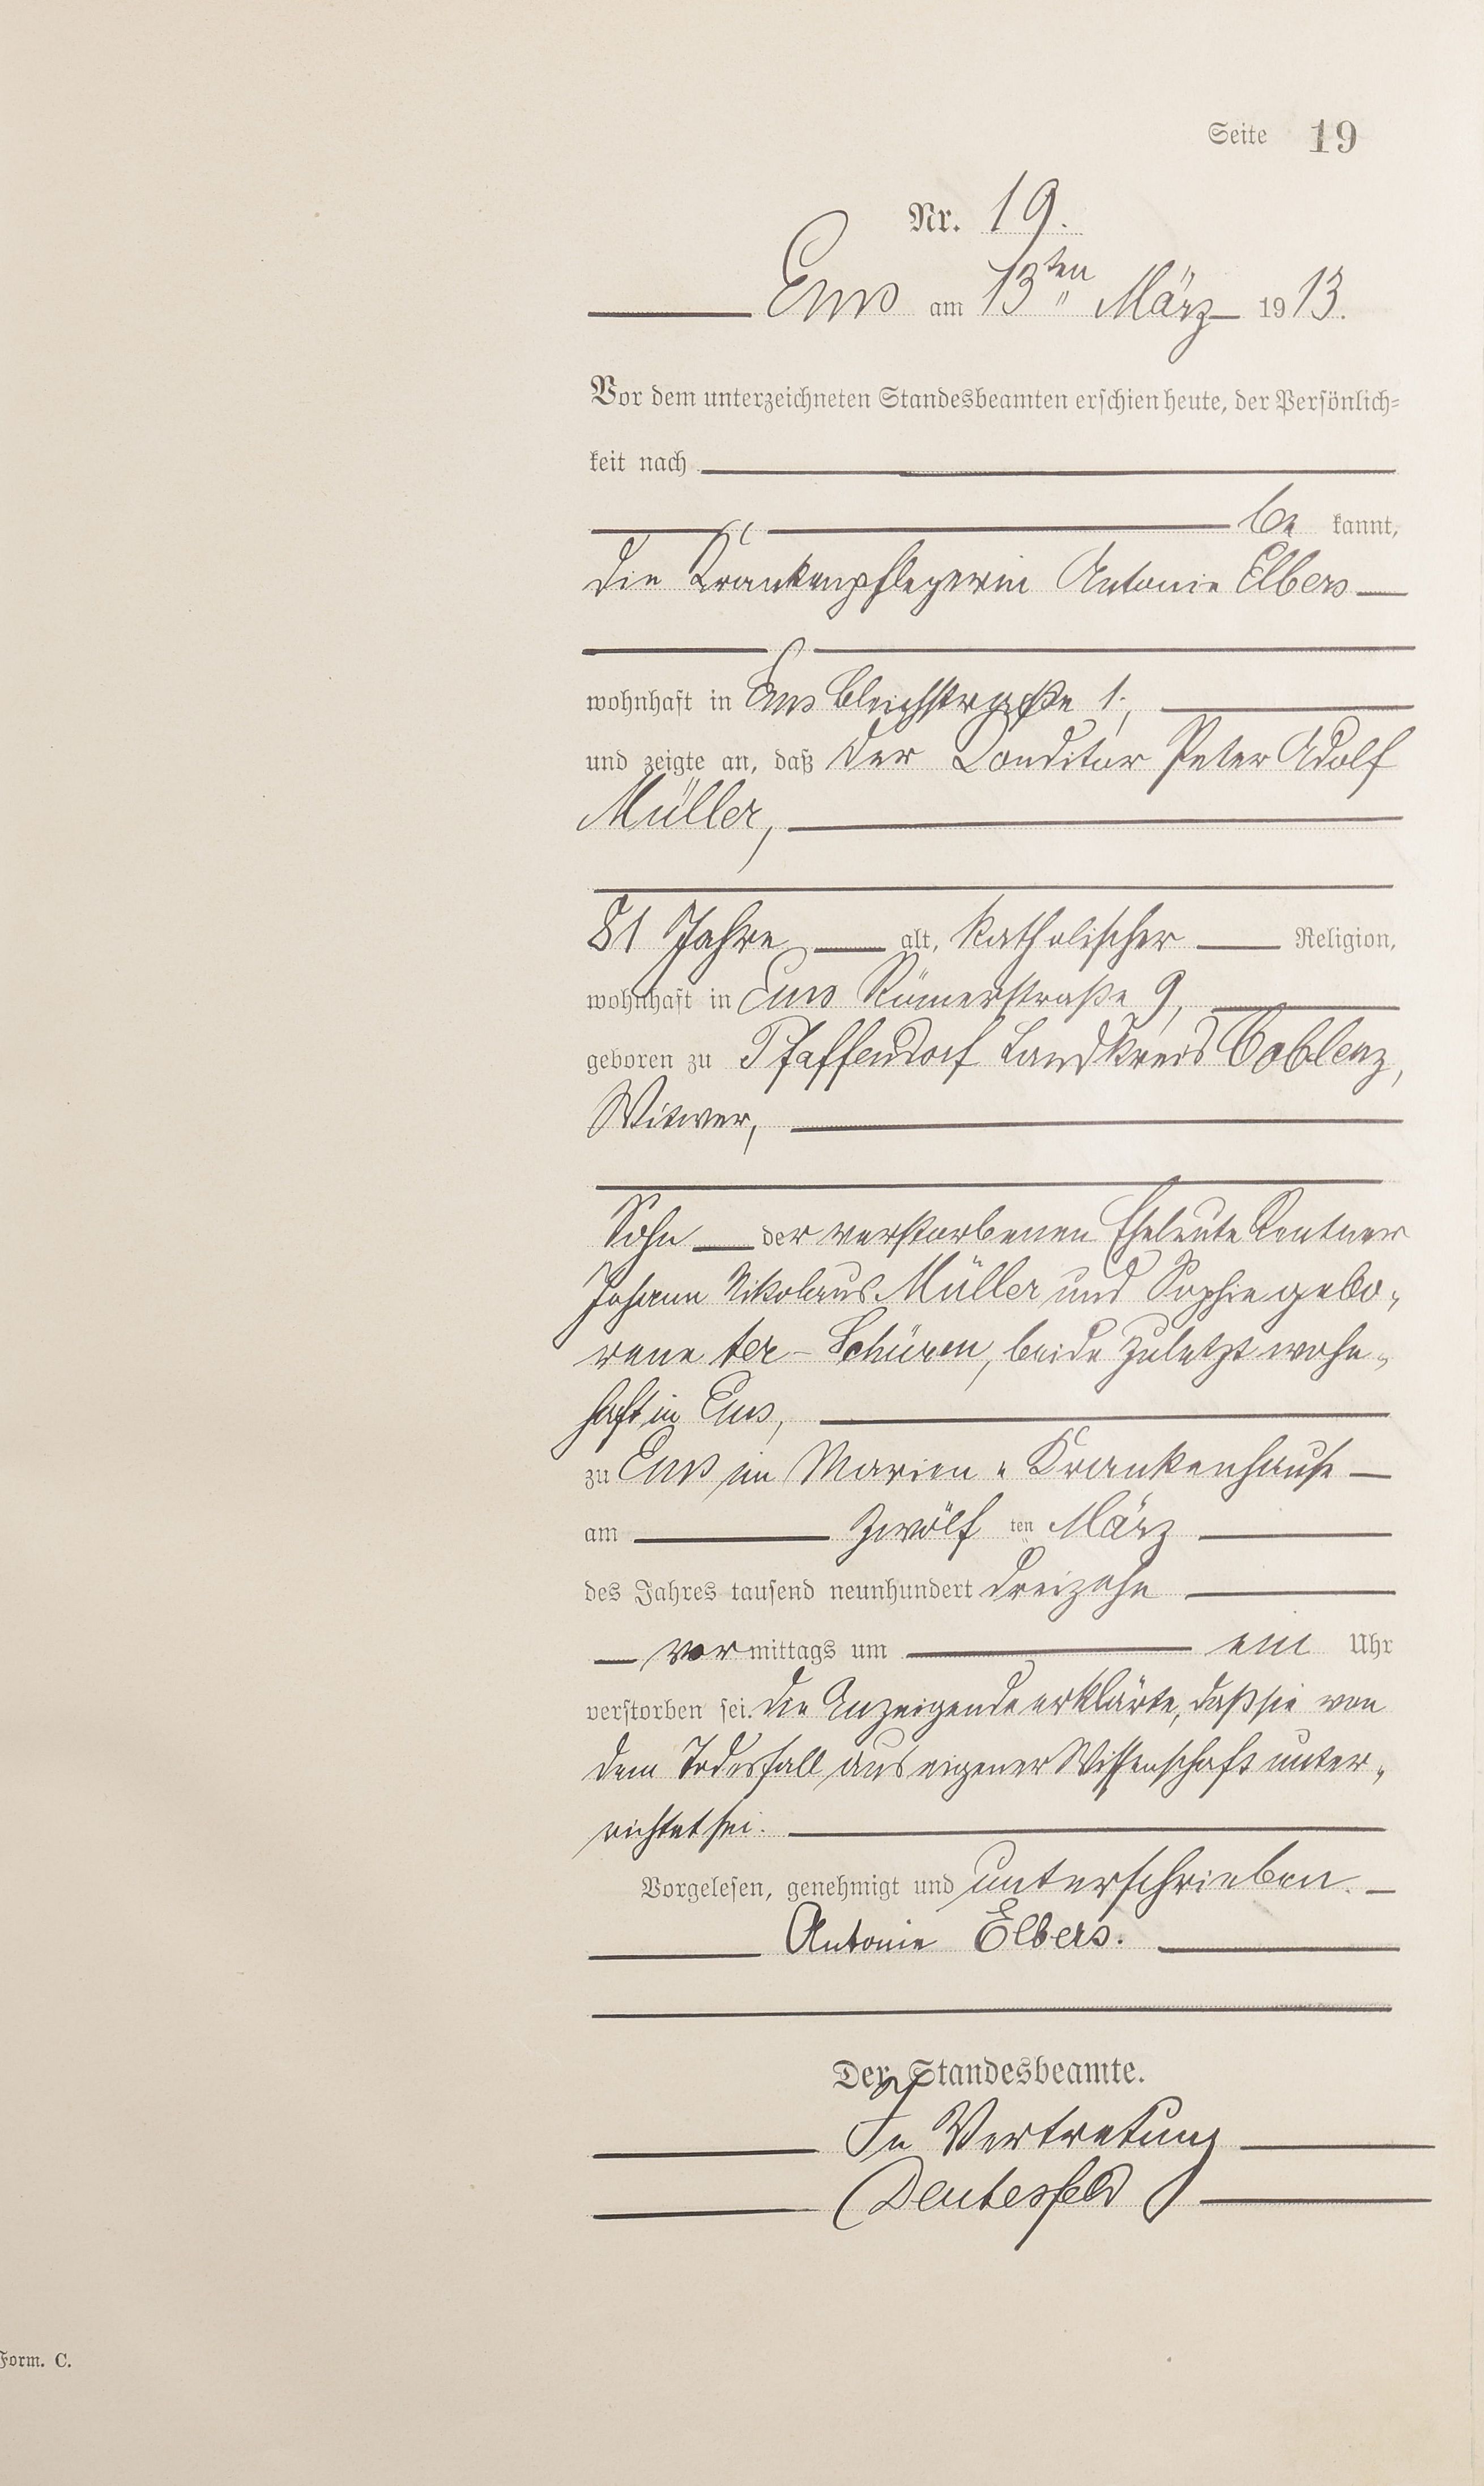 Seite 19
Nr. 19.
Ems am 13ten März 1913.
Vor dem unterzeichneten Standesbeamten erschien heute, der Persönlich=
keit nach
be kannt,
die Krankenpflegerin Antonie Elbers
wohnhaft in Ems Bleichstraße 1,
und zeigte an, daß der Conditor Peter Adolf
Müller,
81 Jahre alt, katholischer Religion,
wohnhaft in Ems Römerstraße 9,
geboren zu Pfaffendorf Landkreis Coblenz,
Witwer,
Sohn der verstorbenen Eheleute Rentner
Johann Nikolaus Müller und Sophie gebo-
rene ter-Schüren, beide zuletzt wohn-
haft in Ems,
zu Ems im Marien-Krankenhause
am zwölf ten März
des Jahres tausend neunhundert dreizehn
vor mittags um ein Uhr
verstorben sei. Die Anzeigende erklärte, daß sie von
dem Todesfall aus eigener Wissenschaft unter-
richtet sei.
Vorgelesen, genehmigt und unterschrieben.
Antonie Elbers.
Der Standesbeamte.
In Vertretung
Form. C.